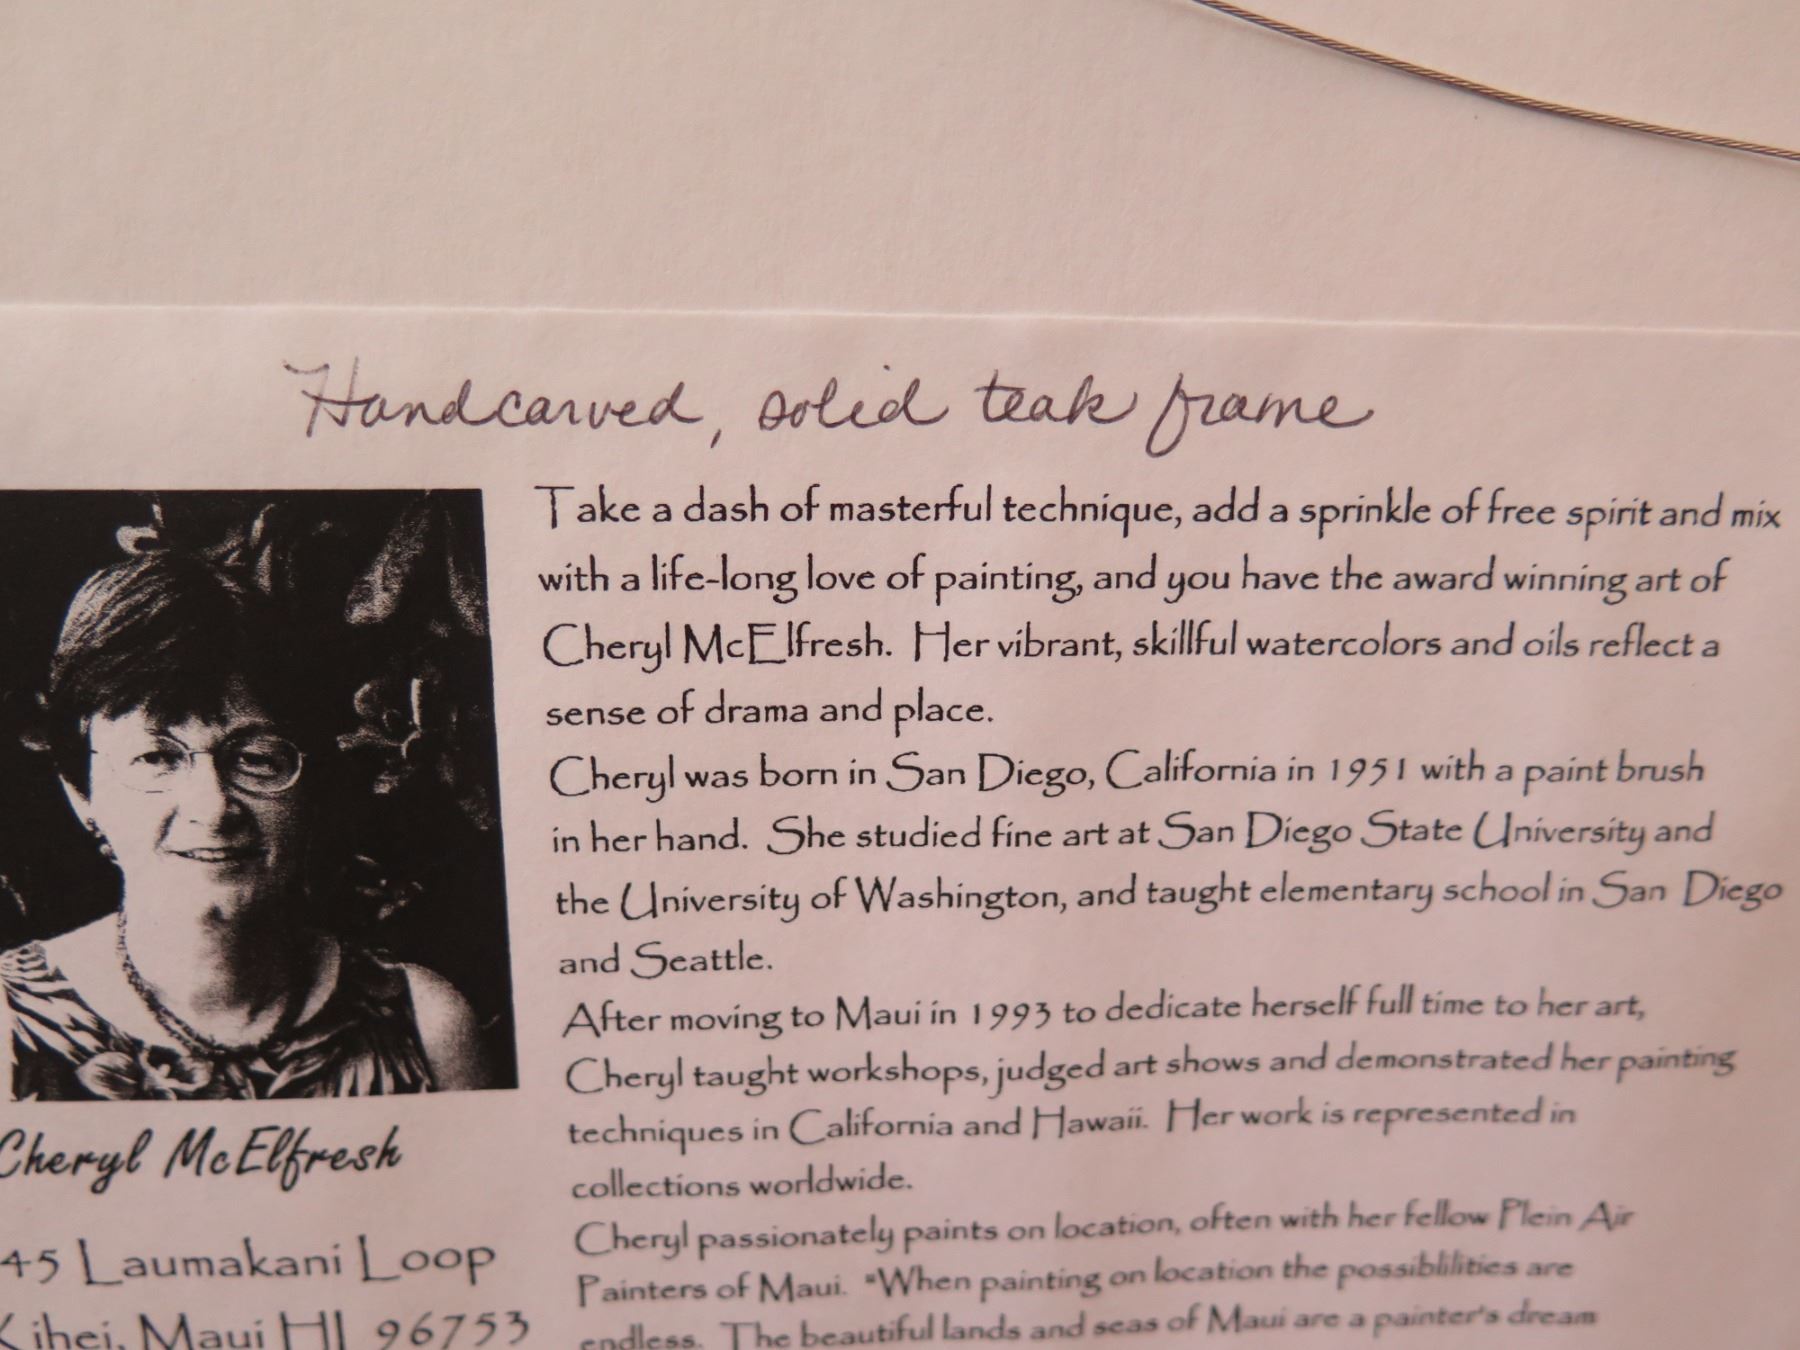 Handcarved, solid teak frame
Take a dash of masterful technique, add a sprinkle of free spirit and mix
with a life-long love of painting, and you have the award winning art of
Cheryl McElfresh. Her vibrant, skillful watercolors and oils reflect a
sense of drama and place.
Cheryl was born in San Diego, California in 1951 with a paint brush
in her hand. She studied fine art at San Diego State University and
the University of Washington, and taught elementary school in San Diego
and Seattle.
After moving to Maui in 1993 to dedicate herself full time to her art,
Cheryl taught workshops, judged art shows and demonstrated her painting
techniques in California and Hawaii. Her work is represented in
collections worldwide.
Cheryl passionately paints on location, often with her fellow Plein Air
Painters of Maui. "When painting on location the possiblilities are
endless. The beautiful lands and seas of Maui are a painter's dream
Cheryl McElfresh
45 Laumakani Loop
Kihei, Maui HI 96753